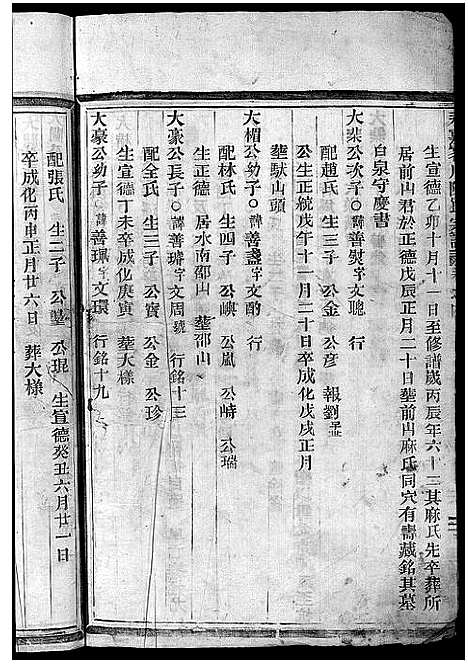 生宣德乙卯十月十一日至修譜歲丙辰年六十三其麻氏先卒葬所
居前山君於正德戊辰正月二十日塟前山麻氏同穴有壽藏銘其墓
白泉守慶書
大業公次子○諱善熨字文聰 行
配趙氏 生三子 公金 公彦 報劉孟
公生正統戊午十一月二十日卒成化戊戌正月
塟馱山頭
大楣公幼子○諱善盞字文酌 行
配林氏 生四子 公嶼 公嵐 公峙 公瑞
生正德 居水南邵山 塟邵山
大豪公長子○諱善 字文周 行銘十三
配全氏 生三子 公寳 公金 公珍
生宣德丁未卒成化庚寅 葬大様
大豪公幼子○諱善 字文環 行銘十九
配張氏 生二子 公 公琨 生宣德癸丑六月廿一日
卒成化丙申正月廿六日 葬大様